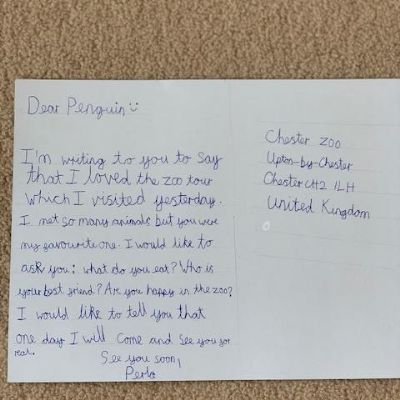 Dear Penguin
I'm writing to you to say
that I loved the zoo tour
which I visited yesterday.
I met so many animals but you were
my favourite one. I would like to
ask you: what do you eat? Who is
your best friend? Are you happy in the zoo?
I would like to tell you that
one day I will come and see you for
real.
See you soon,
Perla
Chester zoo
Upton-by-Chester
Chester CH2 1LH
United Kingdom